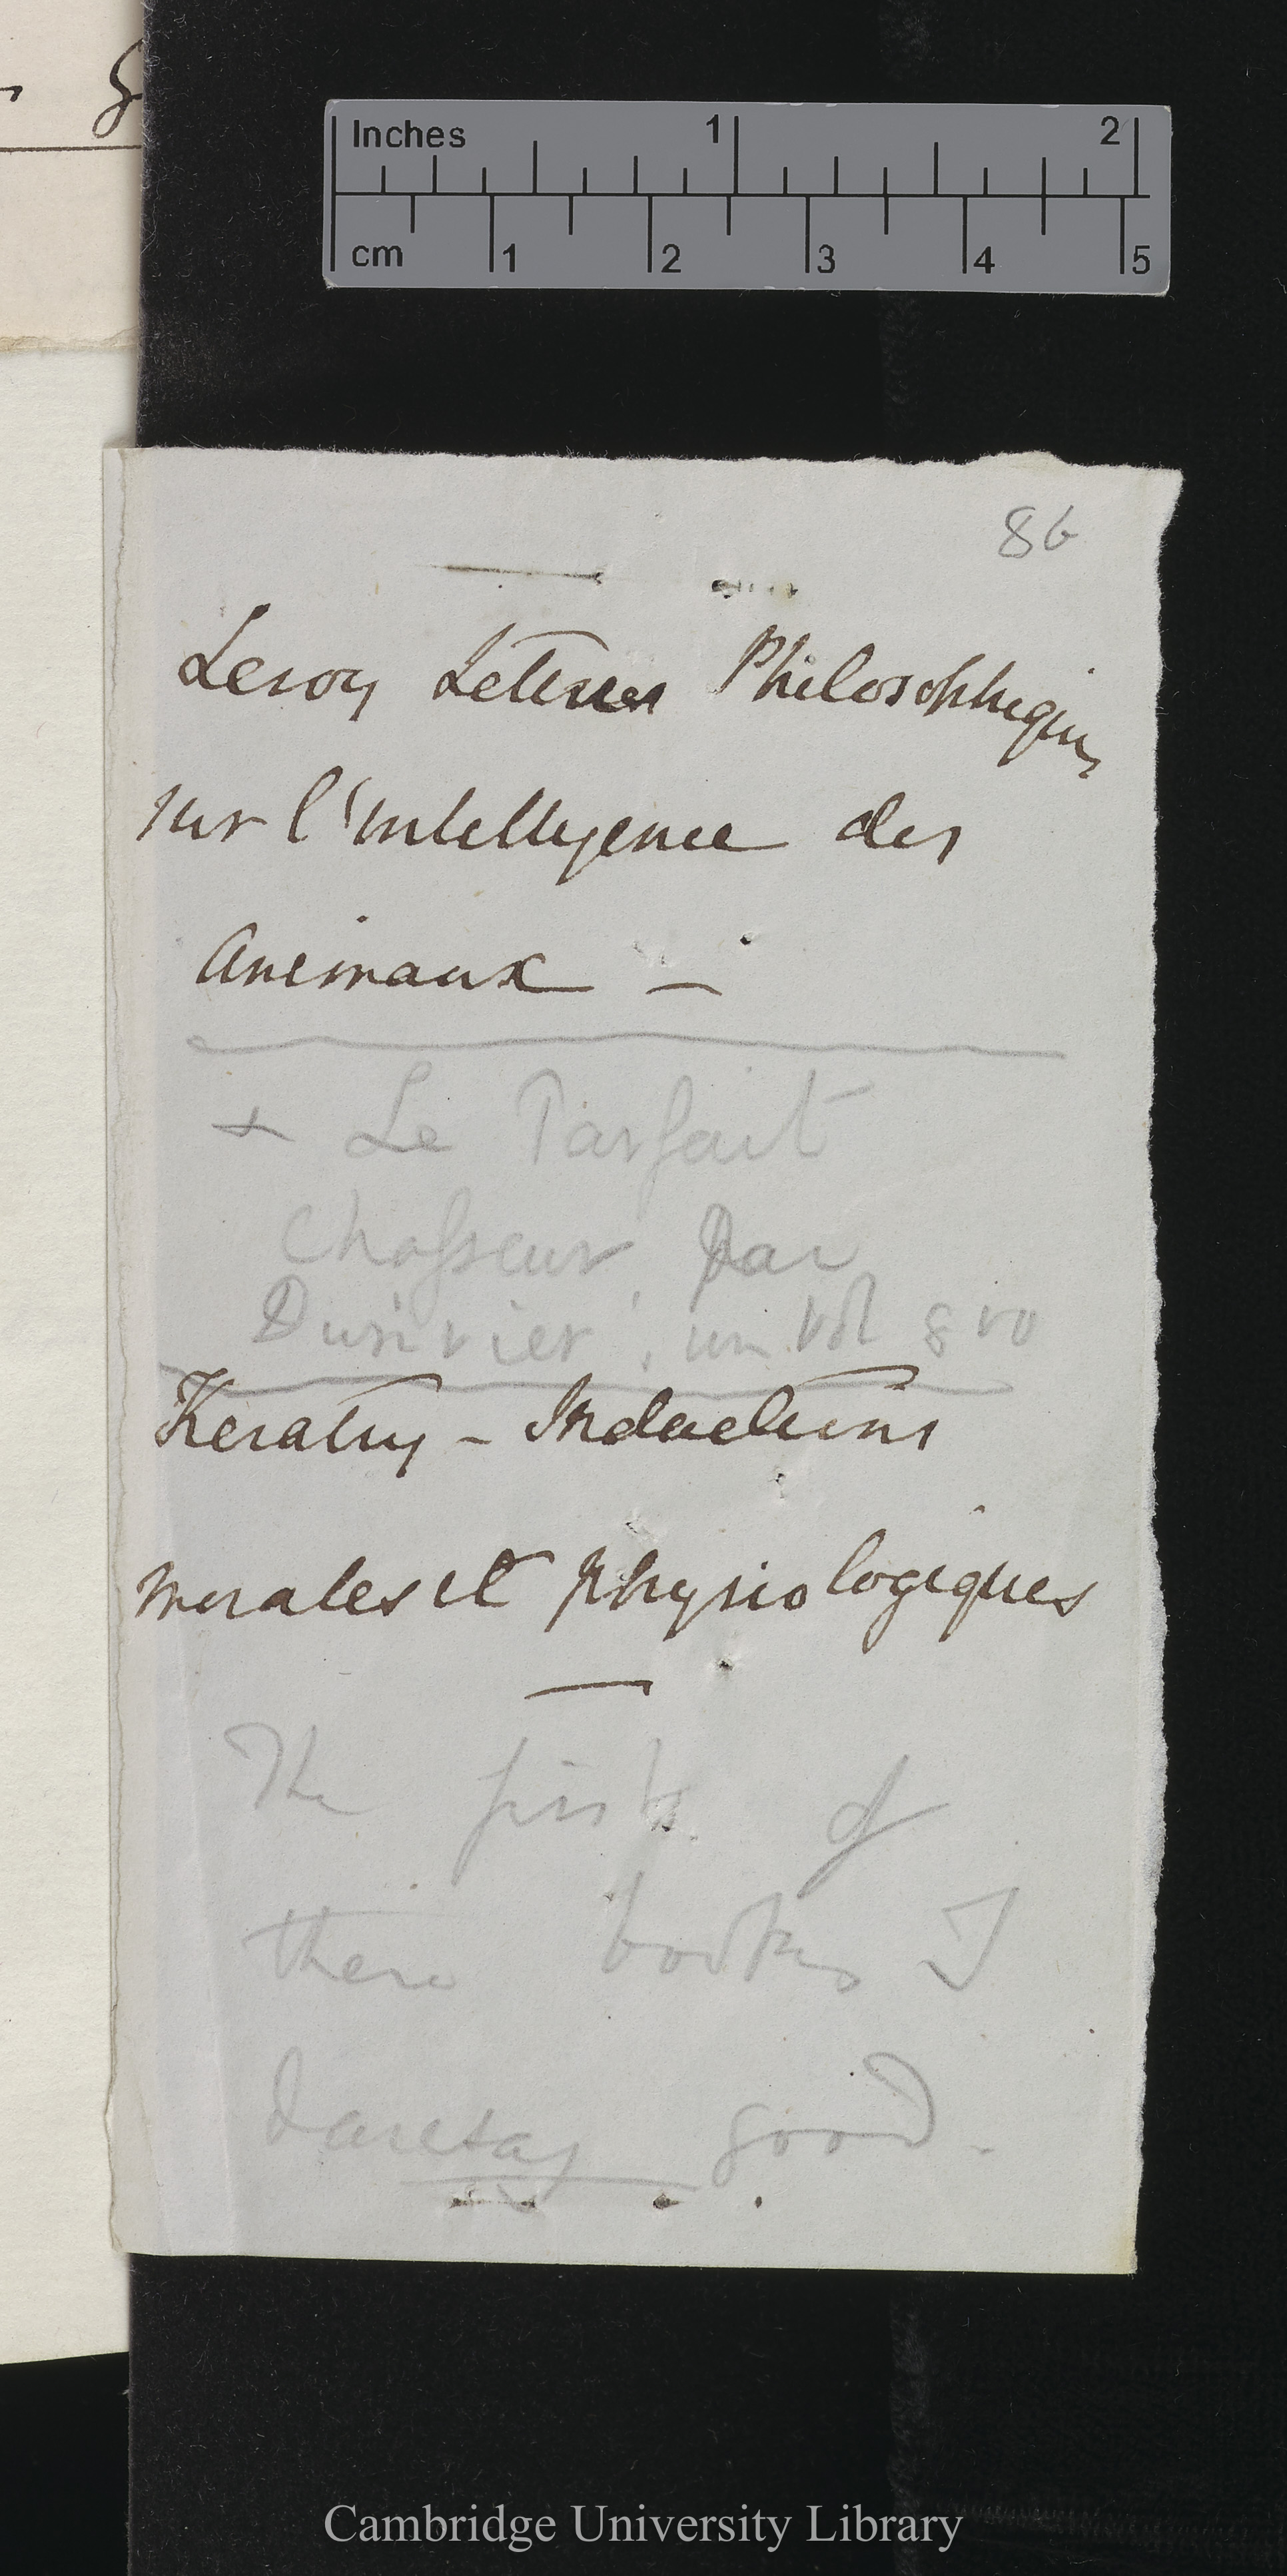 Inches 1 2
cm 1 2 3 4 5
86
Leroy Lettres Philosophiques
sur l'intelligence des
Animaux —
+ Le Parfait
Chasseur par
un vol 8vo
Keratry – Inductions
morales et physiologiques
The first of
these books I
daresay good.
Cambridge University Library